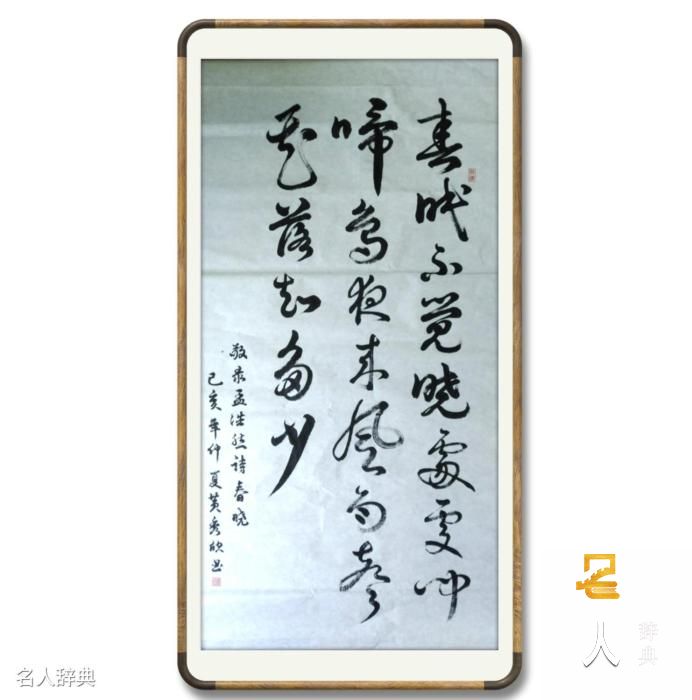 春眠不觉晓處處闻
啼鸟夜来风雨声
花落知多少
敬录孟浩然詩春晓
己亥年仲夏黄秀欣书
名人辞典
名人
辞典